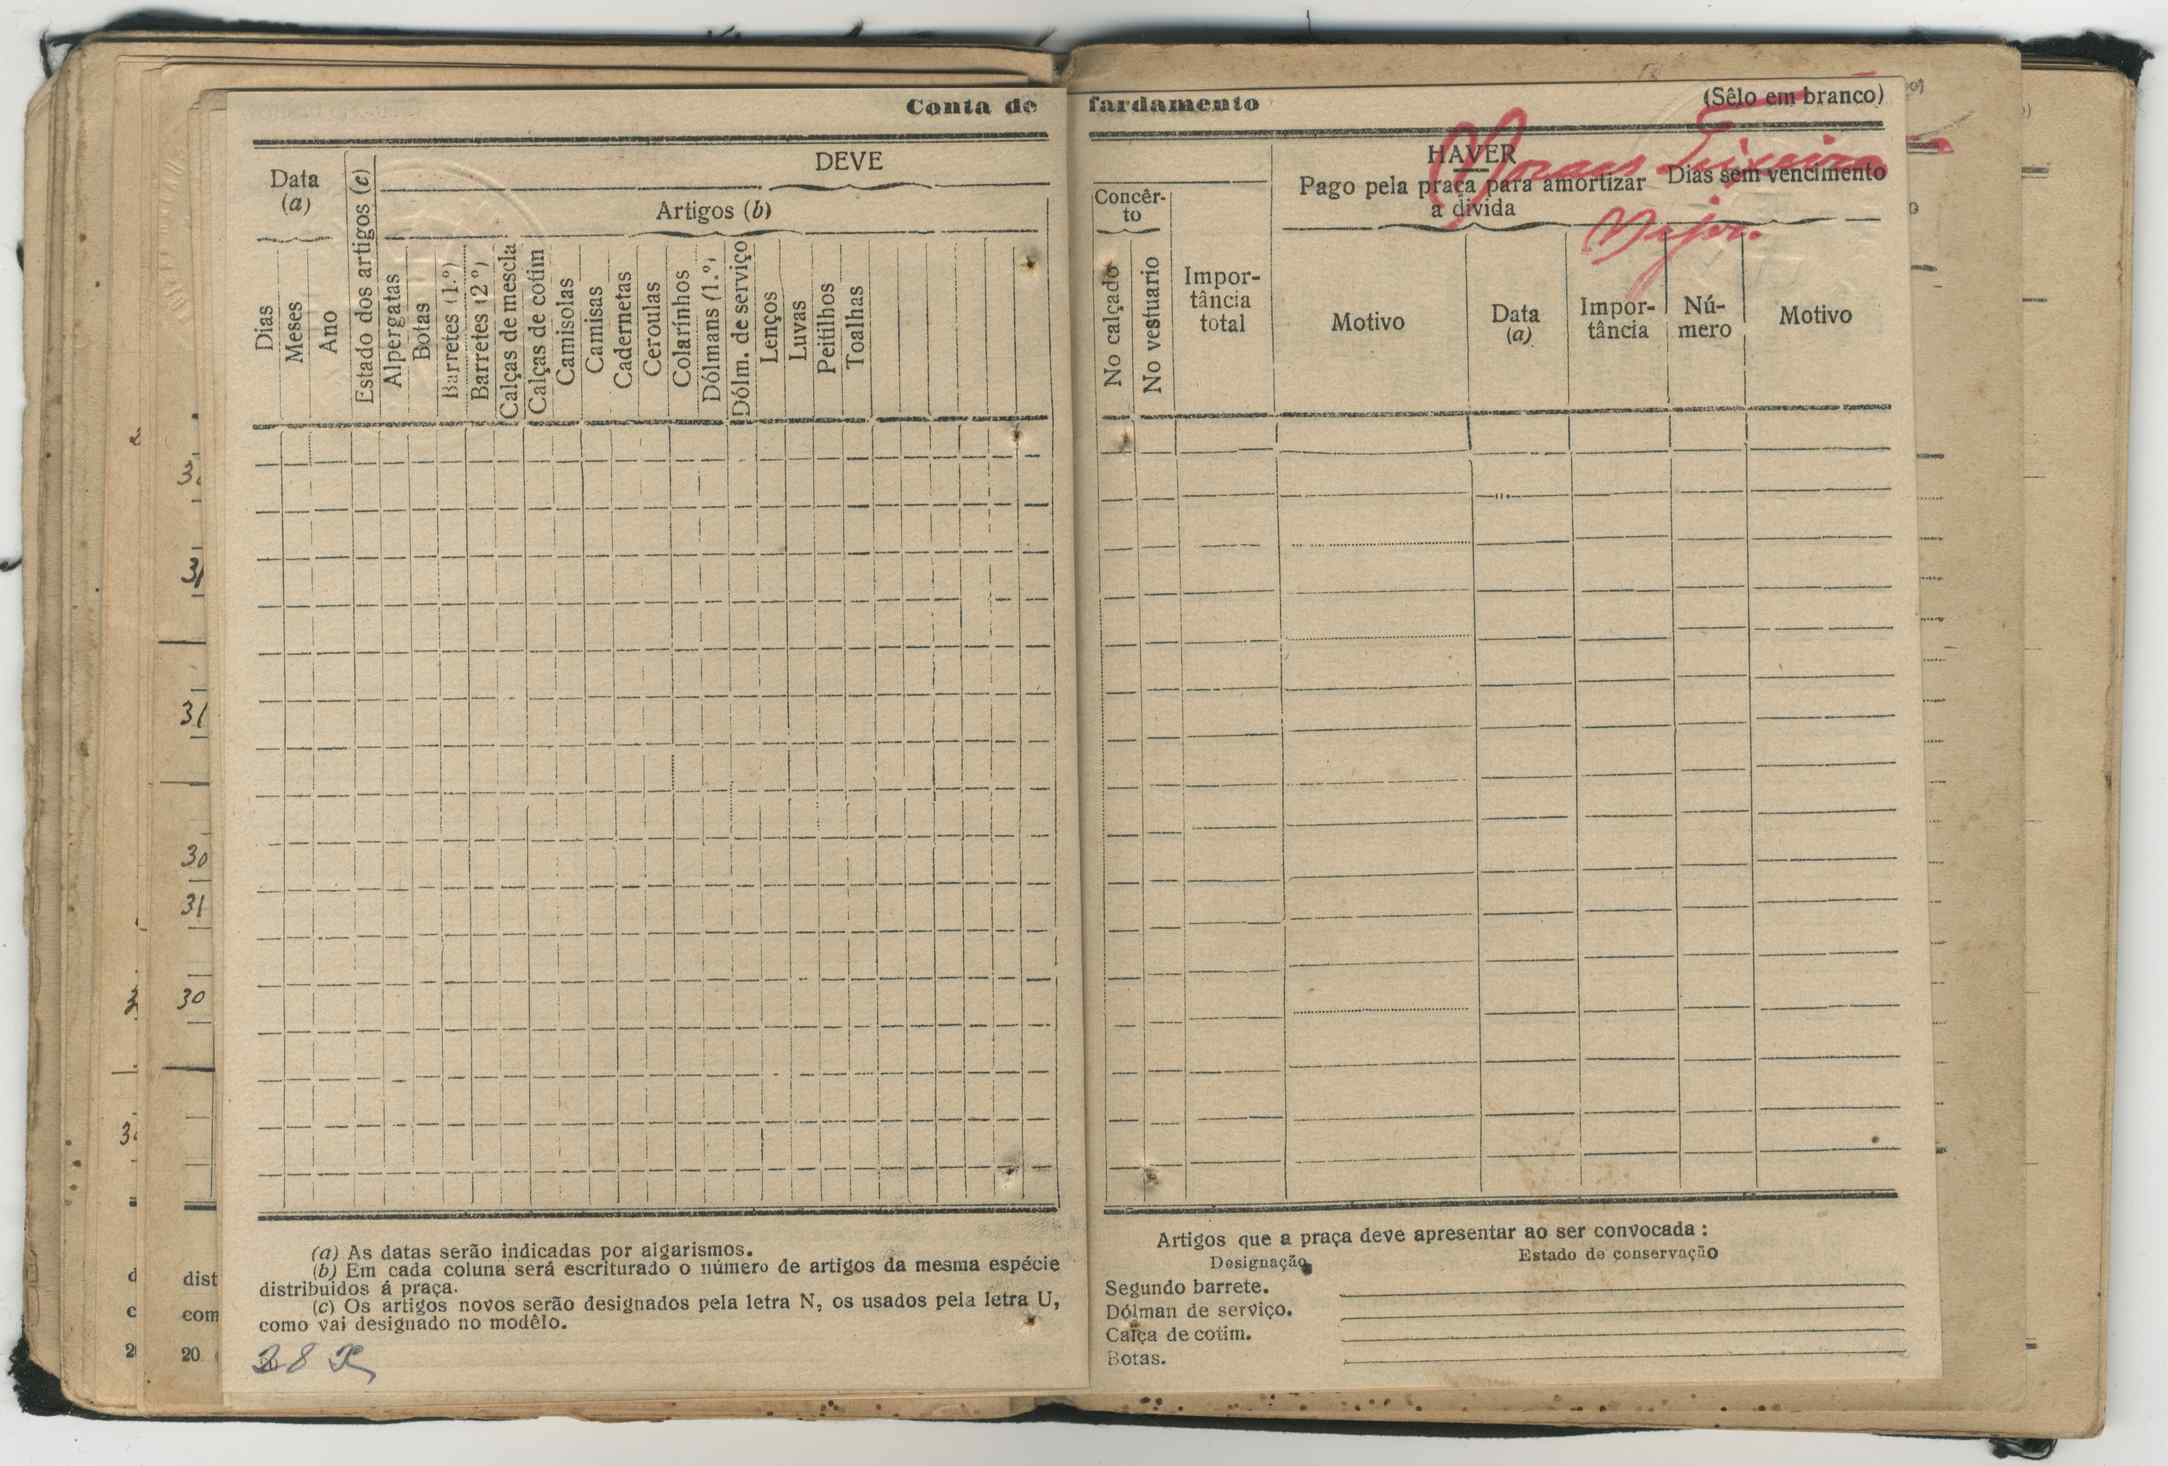 Conta de fardamento
(Sêlo em branco)
Data
(a)
Estado dos artigos (c)
DEVE
Artigos (b)
Dias
Meses
Ano
Alpergatas
Botas
Barretes (1.º)
Barretes (2.º)
Calças de mescla
Calças de cotim
Camisolas
Camisas
Cadernetas
Ceroulas
Colarinhos
Dólmans (1.º)
Dólm. de serviço
Lenços
Luvas
Peitilhos
Toalhas
Concêr-
to
No calçado
No vestuario
Impor-
tância
total
HAVER
Pago pela praça para amortizar
a divida
Motivo
Data
(a)
Impor-
tância
Dias sem vencimento
Nú-
mero
Motivo
Teixeira
(a) As datas serão indicadas por algarismos.
(b) Em cada coluna será escriturado o número de artigos da mesma espécie
distribuidos á praça.
(c) Os artigos novos serão designados pela letra N, os usados pela letra U,
como vai designado no modêlo.
Artigos que a praça deve apresentar ao ser convocada :
Designação
Estado de conservação
Segundo barrete.
Dólman de serviço.
Calça de cotim.
Botas.
31
31
30
31
30
dist
com
20